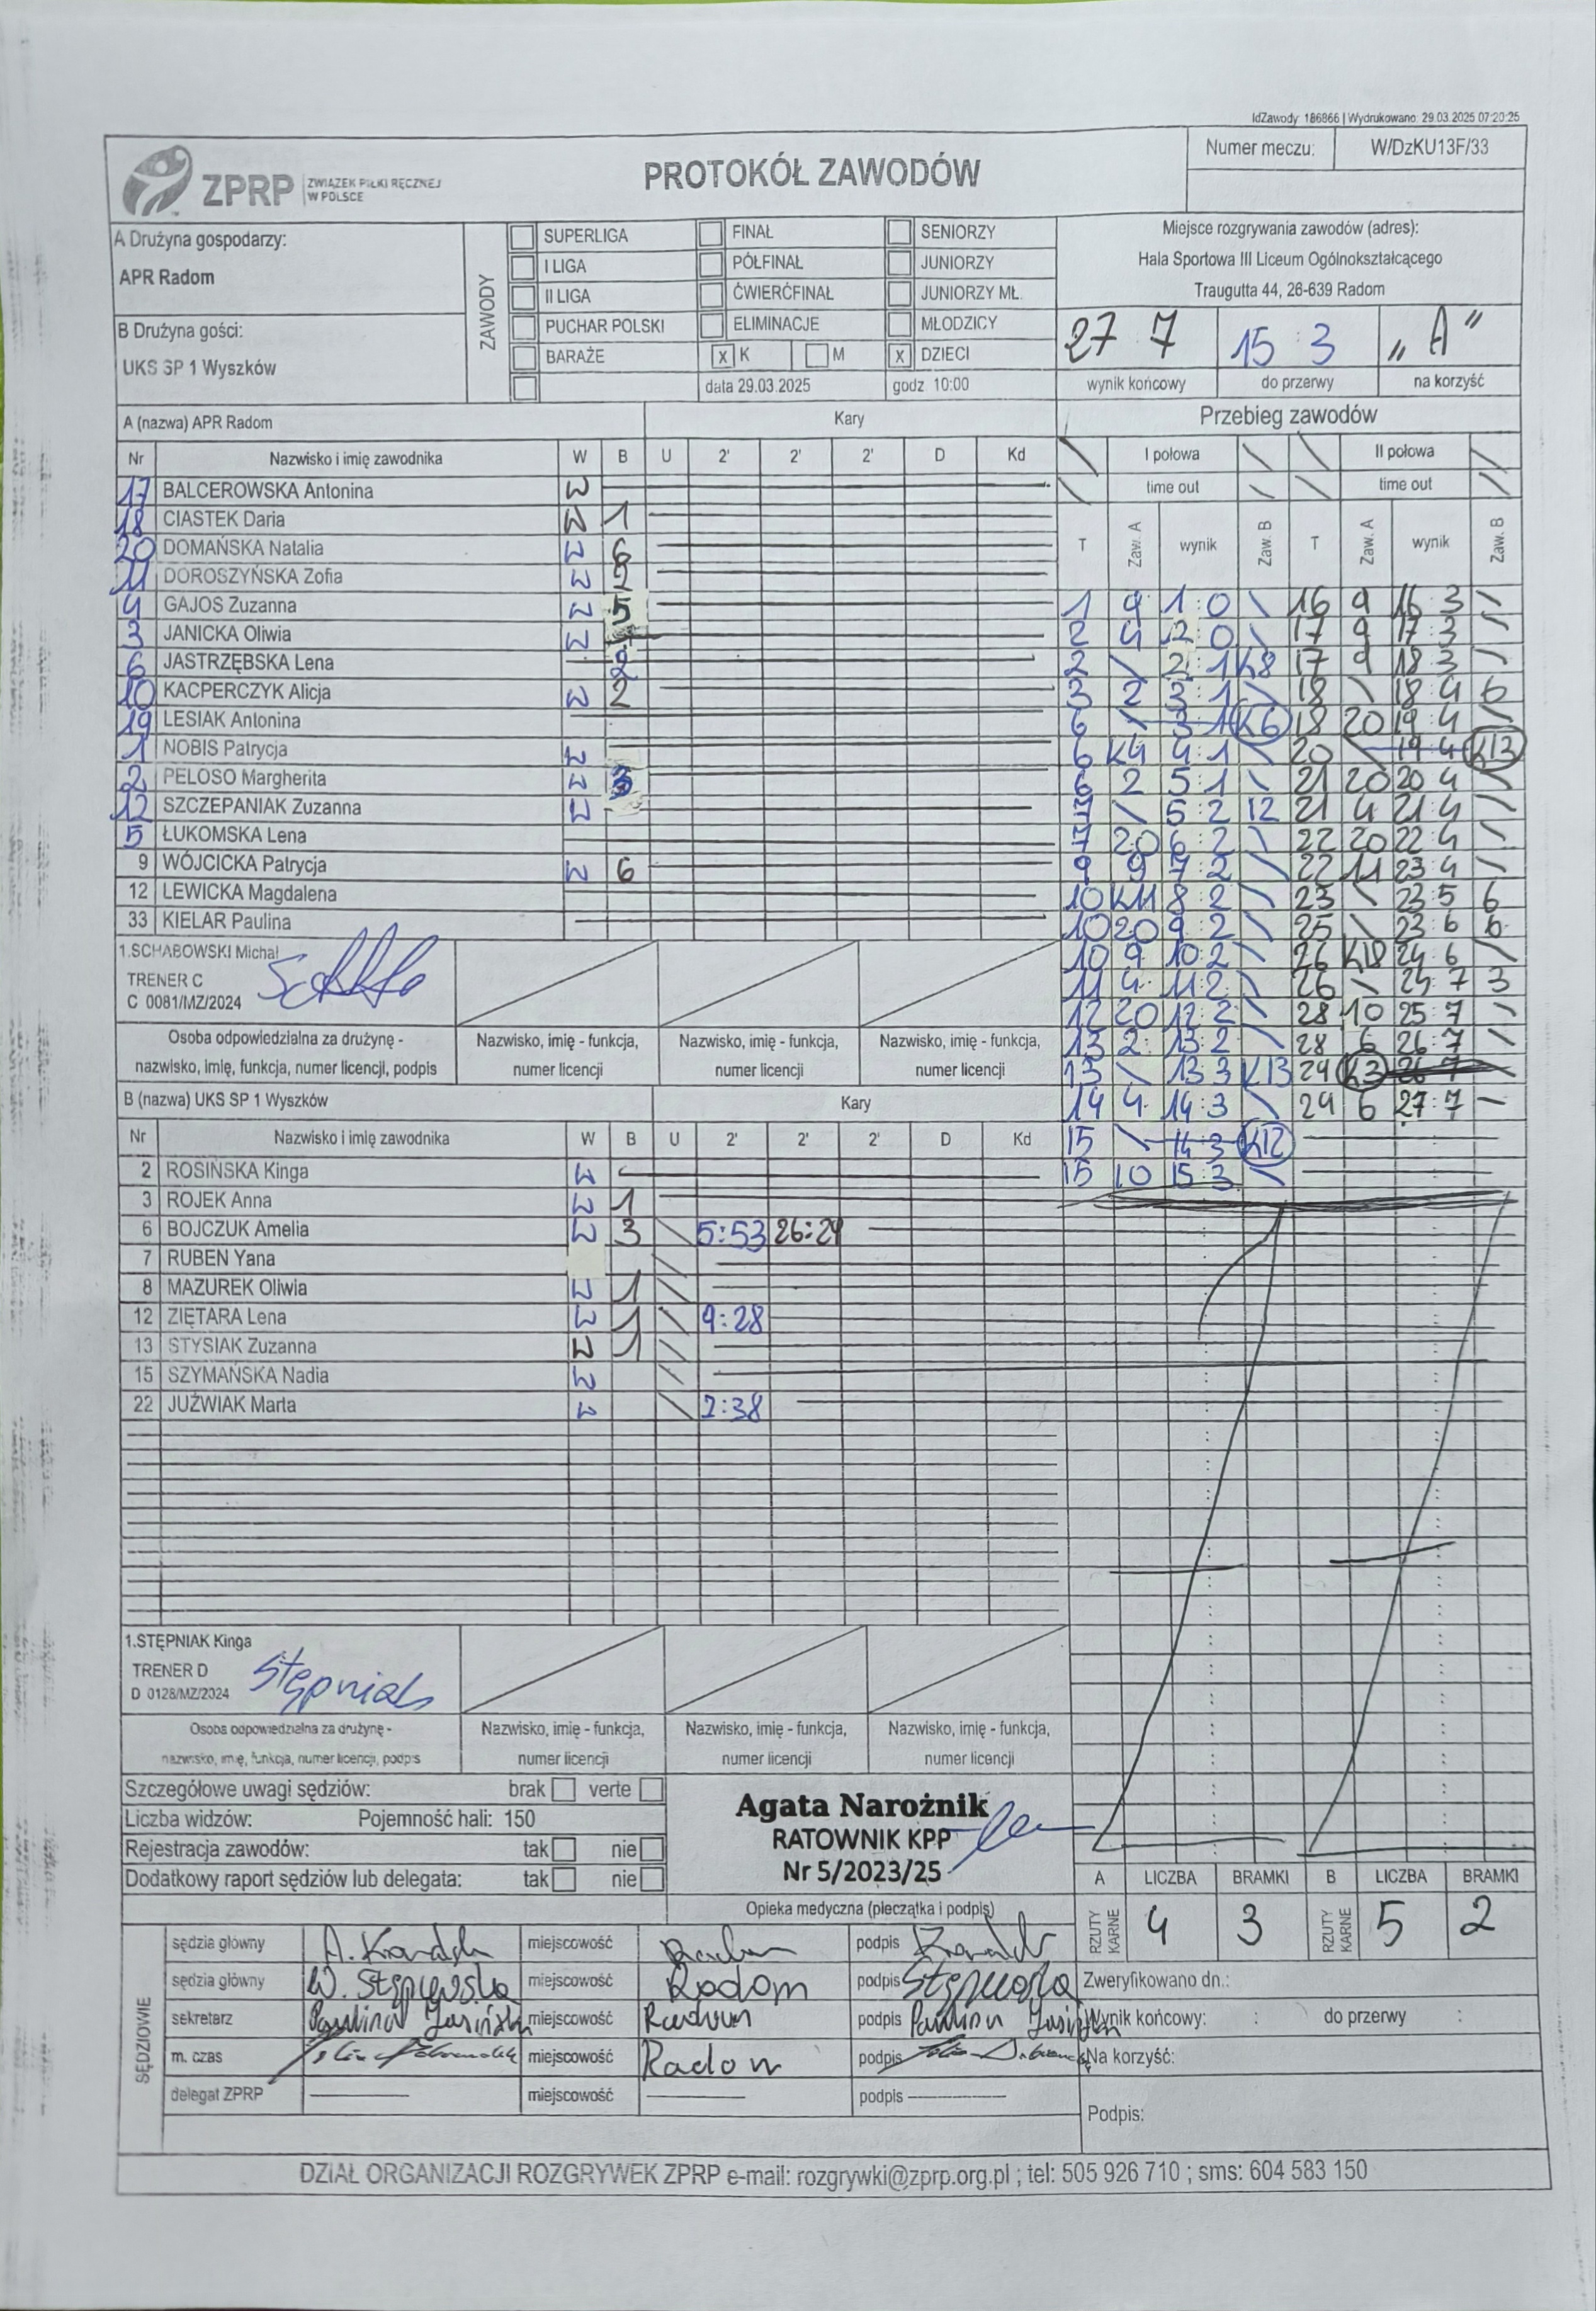 IdZawody: 186866 | Wydrukowano: 29.03.2025 07:20:25
Numer meczu: W/DzKU13F/33
ZPRP ZWIĄZEK PIŁKI RĘCZNEJ W POLSCE
PROTOKÓŁ ZAWODÓW
A Drużyna gospodarzy:
APR Radom
B Drużyna gości:
UKS SP 1 Wyszków
ZAWODY
SUPERLIGA FINAŁ SENIORZY
I LIGA PÓŁFINAŁ JUNIORZY
II LIGA ĆWIERĆFINAŁ JUNIORZY MŁ.
PUCHAR POLSKI ELIMINACJE MŁODZICY
BARAŻE x K M x DZIECI
data 29.03.2025 godz 10:00
Miejsce rozgrywania zawodów (adres):
Hala Sportowa III Liceum Ogólnokształcącego
Traugutta 44, 26-639 Radom
27 7 15 3 „A"
wynik końcowy do przerwy na korzyść
A (nazwa) APR Radom Kary
Nr Nazwisko i imię zawodnika W B U 2' 2' 2' D Kd
17 BALCEROWSKA Antonina W
18 CIASTEK Daria W 1
20 DOMAŃSKA Natalia W 6
11 DOROSZYŃSKA Zofia W 2
4 GAJOS Zuzanna W 5
3 JANICKA Oliwia W
6 JASTRZĘBSKA Lena 2
10 KACPERCZYK Alicja W 2
19 LESIAK Antonina
1 NOBIS Patrycja W
2 PELOSO Margherita W 3
12 SZCZEPANIAK Zuzanna W
5 ŁUKOMSKA Lena
9 WÓJCICKA Patrycja W 6
12 LEWICKA Magdalena
33 KIELAR Paulina
1.SCHABOWSKI Michał
TRENER C
C 0081/MZ/2024
Osoba odpowiedzialna za drużynę - Nazwisko, imię - funkcja, Nazwisko, imię - funkcja, Nazwisko, imię - funkcja,
nazwisko, imię, funkcja, numer licencji, podpis numer licencji numer licencji numer licencji
Przebieg zawodów
I połowa II połowa
time out time out
T Zaw. A wynik Zaw. B T Zaw. A wynik Zaw. B
1 9 1:0 \ 16 9 16:3 \
2 4 2:0 \ 17 9 17:3 \
2 \ 2:1 K8 17 9 18:3 \
3 2 3:1 \ 18 \ 18:4 6
6 \ 3:1 K6 18 20 19:4 \
6 K4 4:1 \ 20 \ 19:4 K13
6 2 5:1 \ 21 20 20:4 \
7 \ 5:2 12 21 4 21:4 \
7 20 6:2 \ 22 20 22:4 \
9 9 7:2 \ 22 11 23:4 \
10 K11 8:2 \ 23 \ 23:5 6
10 20 9:2 \ 25 \ 23:6 6
10 9 10:2 \ 26 K18 24:6 \
11 4 11:2 \ 26 \ 24:7 3
12 20 12:2 \ 28 10 25:7 \
13 2 13:2 \ 28 6 26:7 \
13 \ 13:3 K13 29 K3 26 7
14 4 14:3 \ 29 6 27:7 \
15 \ 14:3 K12
15 10 15:3 \
B (nazwa) UKS SP 1 Wyszków Kary
Nr Nazwisko i imię zawodnika W B U 2' 2' 2' D Kd
2 ROSIŃSKA Kinga W
3 ROJEK Anna W 1
6 BOJCZUK Amelia W 3 5:53 26:29
7 RUBEN Yana
8 MAZUREK Oliwia W 1
12 ZIĘTARA Lena W 1 9:28
13 STYSIAK Zuzanna W 1
15 SZYMAŃSKA Nadia W
22 JUŹWIAK Marta W 2:38
1.STĘPNIAK Kinga
TRENER D
D 0128/MZ/2024
Stępniak
Osoba odpowiedzialna za drużynę - Nazwisko, imię - funkcja, Nazwisko, imię - funkcja, Nazwisko, imię - funkcja,
nazwisko, imię, funkcja, numer licencji, podpis numer licencji numer licencji numer licencji
Szczegółowe uwagi sędziów: brak verte
Liczba widzów: Pojemność hali: 150
Rejestracja zawodów: tak nie
Dodatkowy raport sędziów lub delegata: tak nie
Agata Narożnik
RATOWNIK KPP
Nr 5/2023/25
Opieka medyczna (pieczątka i podpis)
A LICZBA BRAMKI B LICZBA BRAMKI
RZUTY KARNE 4 3 RZUTY KARNE 5 2
SĘDZIOWIE
sędzia główny miejscowość Radom podpis
sędzia główny miejscowość Radom podpis
sekretarz Paulina miejscowość Radom podpis Paulina
m. czas miejscowość Radom podpis
delegat ZPRP miejscowość podpis
Zweryfikowano dn.:
Wynik końcowy: : do przerwy :
Na korzyść:
Podpis:
DZIAŁ ORGANIZACJI ROZGRYWEK ZPRP e-mail: rozgrywki@zprp.org.pl ; tel: 505 926 710 ; sms: 604 583 150